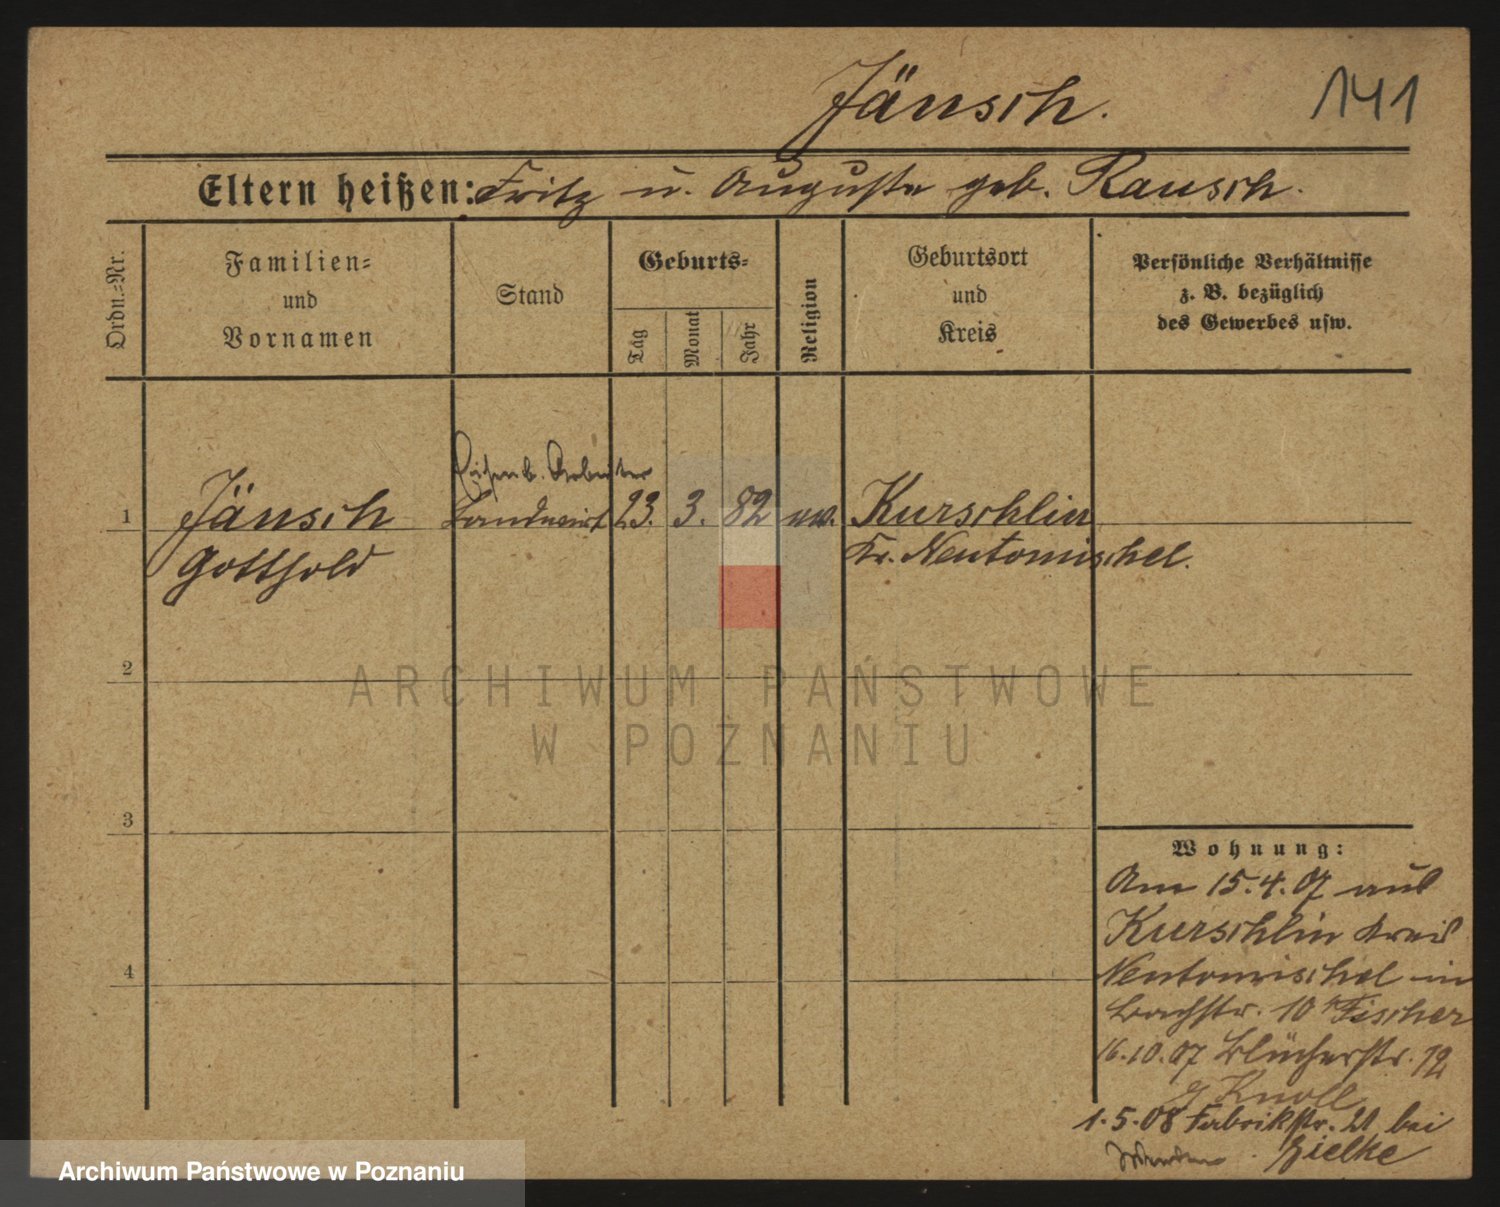 Jänsch.
141
Eltern heißen: Fritz u. Auguste geb. Rausch.
Ordn.=Nr.
Familien=
und
Vornamen
Stand
Geburts=
Tag
Monat
Jahr
Religion
Geburtsort
und
Kreis
Persönliche Verhältnisse
z. B. bezüglich
des Gewerbes usw.
Eisenb. Arbeiter
1 Jänsch Landwirt 23. 3. 82 ev. Kurschlin
Gotthold Kr. Neutomischel.
2
ARCHIWUM PAŃSTWOWE
W POZNANIU
3
Wohnung:
Am 15.4.07 aus
Kurschlin Kreis
Neutomischel in
Bachstr. 10 Fischer
16.10.07 Blücherstr. 12
Knoll
4
1.5.08 Fabrikstr. 21 bei
Zielke
Archiwum Państwowe w Poznaniu